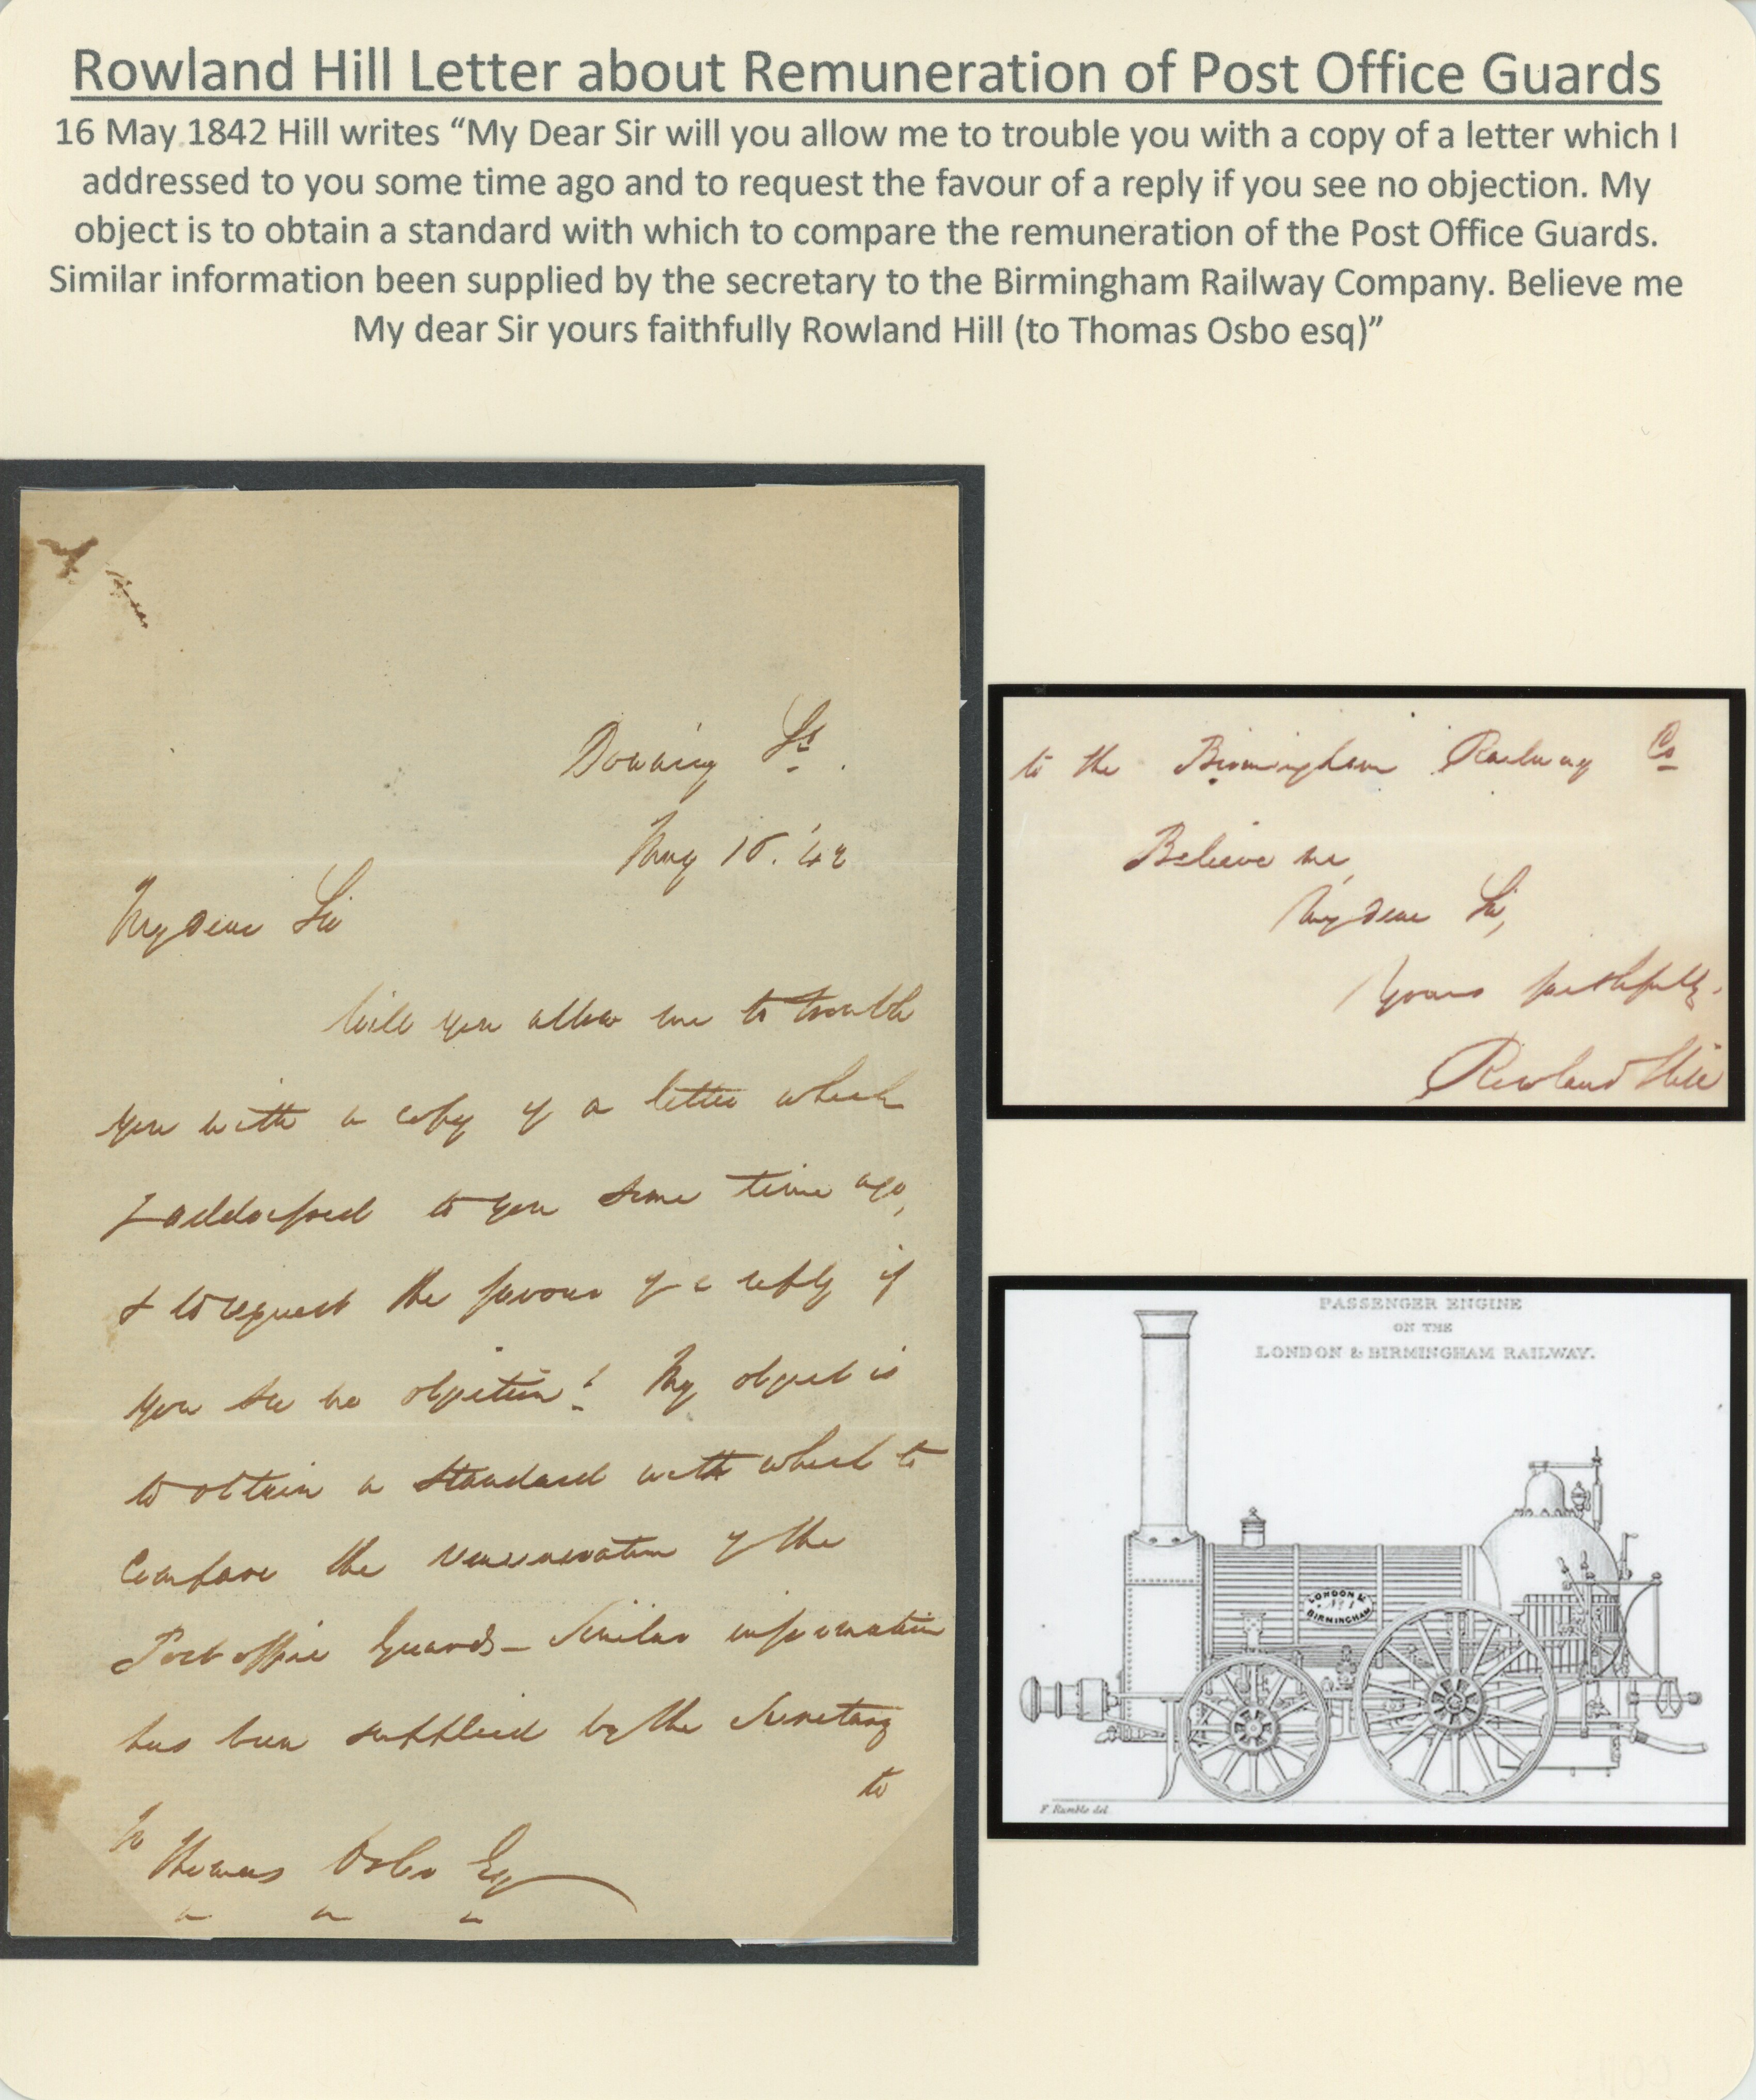 Rowland Hill Letter about Remuneration of Post Office Guards
16 May 1842 Hill writes “My Dear Sir will you allow me to trouble you with a copy of a letter which I
addressed to you some time ago and to request the favour of a reply if you see no objection. My
object is to obtain a standard with which to compare the remuneration of the Post Office Guards.
Similar information been supplied by the secretary to the Birmingham Railway Company. Believe me
My dear Sir yours faithfully Rowland Hill (to Thomas Osbo esq)”
Downing St.
May 16. '42
My dear Sir
Will you allow me to trouble
you with a copy of a letter which
I addressed to you some time ago,
& to request the favour of a reply if
you see no objection! My object is
to obtain a standard with which to
compare the remuneration of the
Post office Guards – Similar information
has been supplied by the Secretary
to
To
Thomas Esq
to the Birmingham Railway Co
Believe me,
My dear Sir,
Yours faithfully.
Rowland Hill
PASSENGER ENGINE
ON THE
LONDON & BIRMINGHAM RAILWAY.
LONDON &
No 1
BIRMINGHAM
F. Rumble del.